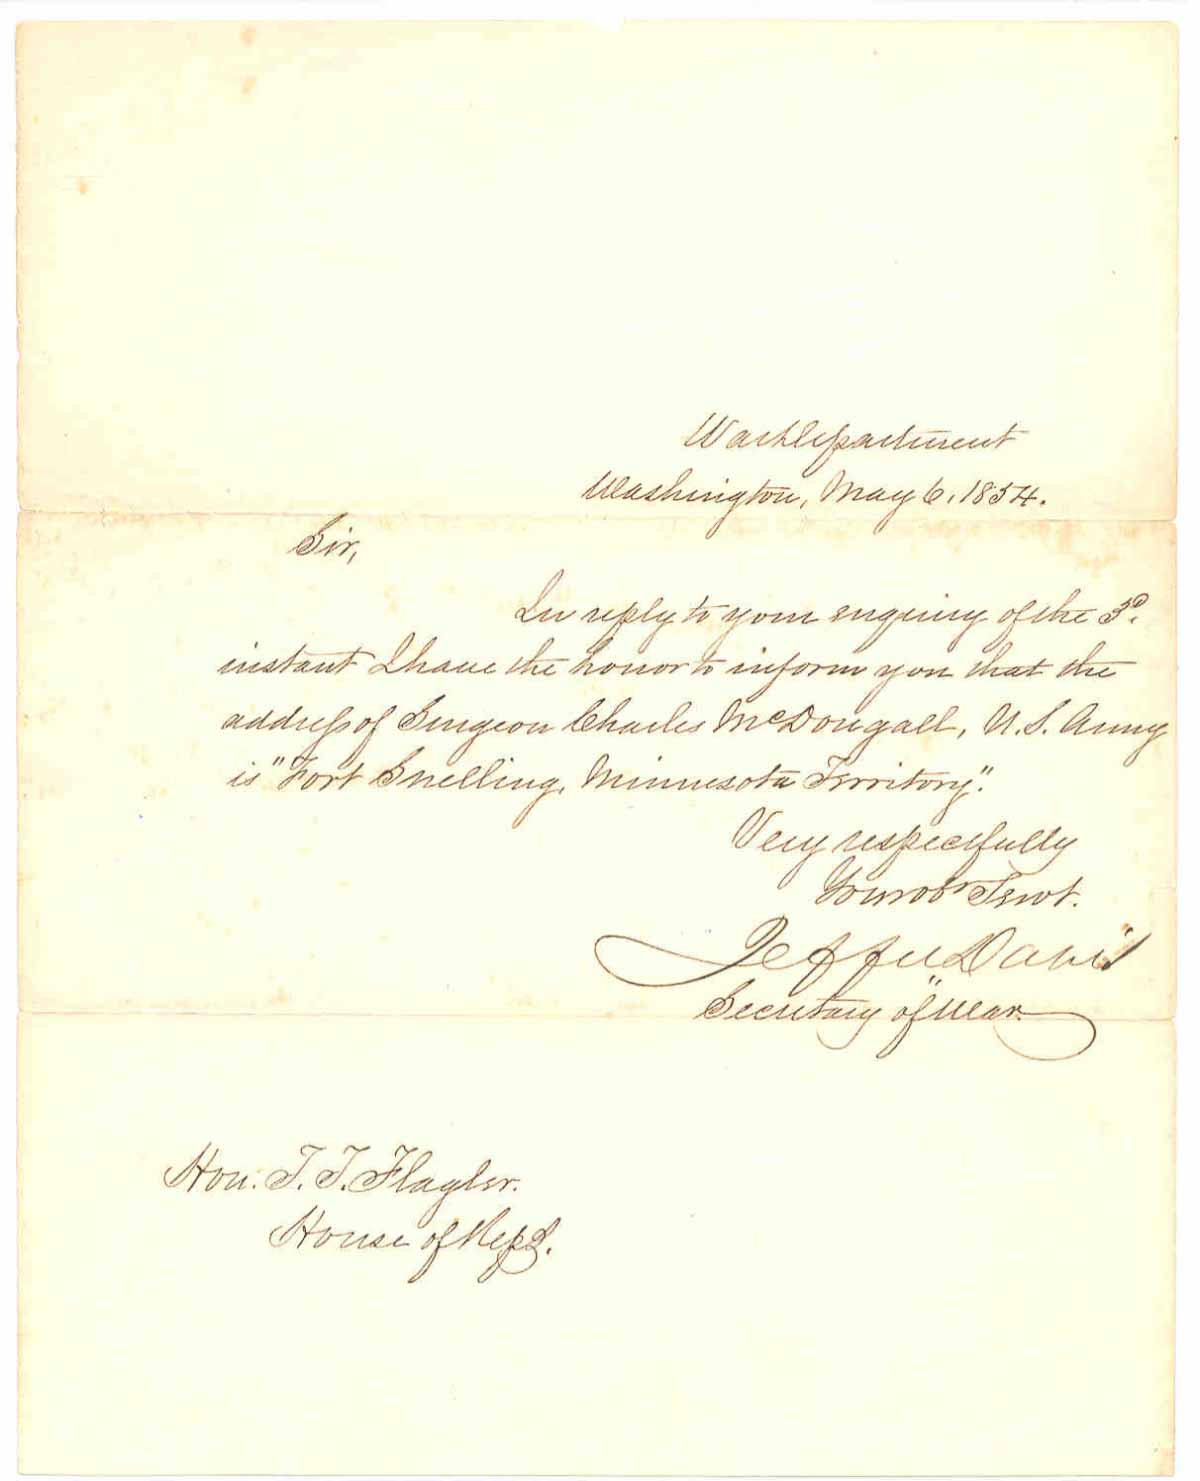 War Department
Washington, May 6, 1854.
Sir,
In reply to your enquiry of the 3d.
instant I have the honor to inform you that the
address of Surgeon Charles McDougall, U.S. Army
is "Fort Snelling, Minnesota Territory".
Very respectfully
Your obt Servt.
Jeffn Davis
Secretary of War
Hon. T. T. Flagler.
House of Reps.